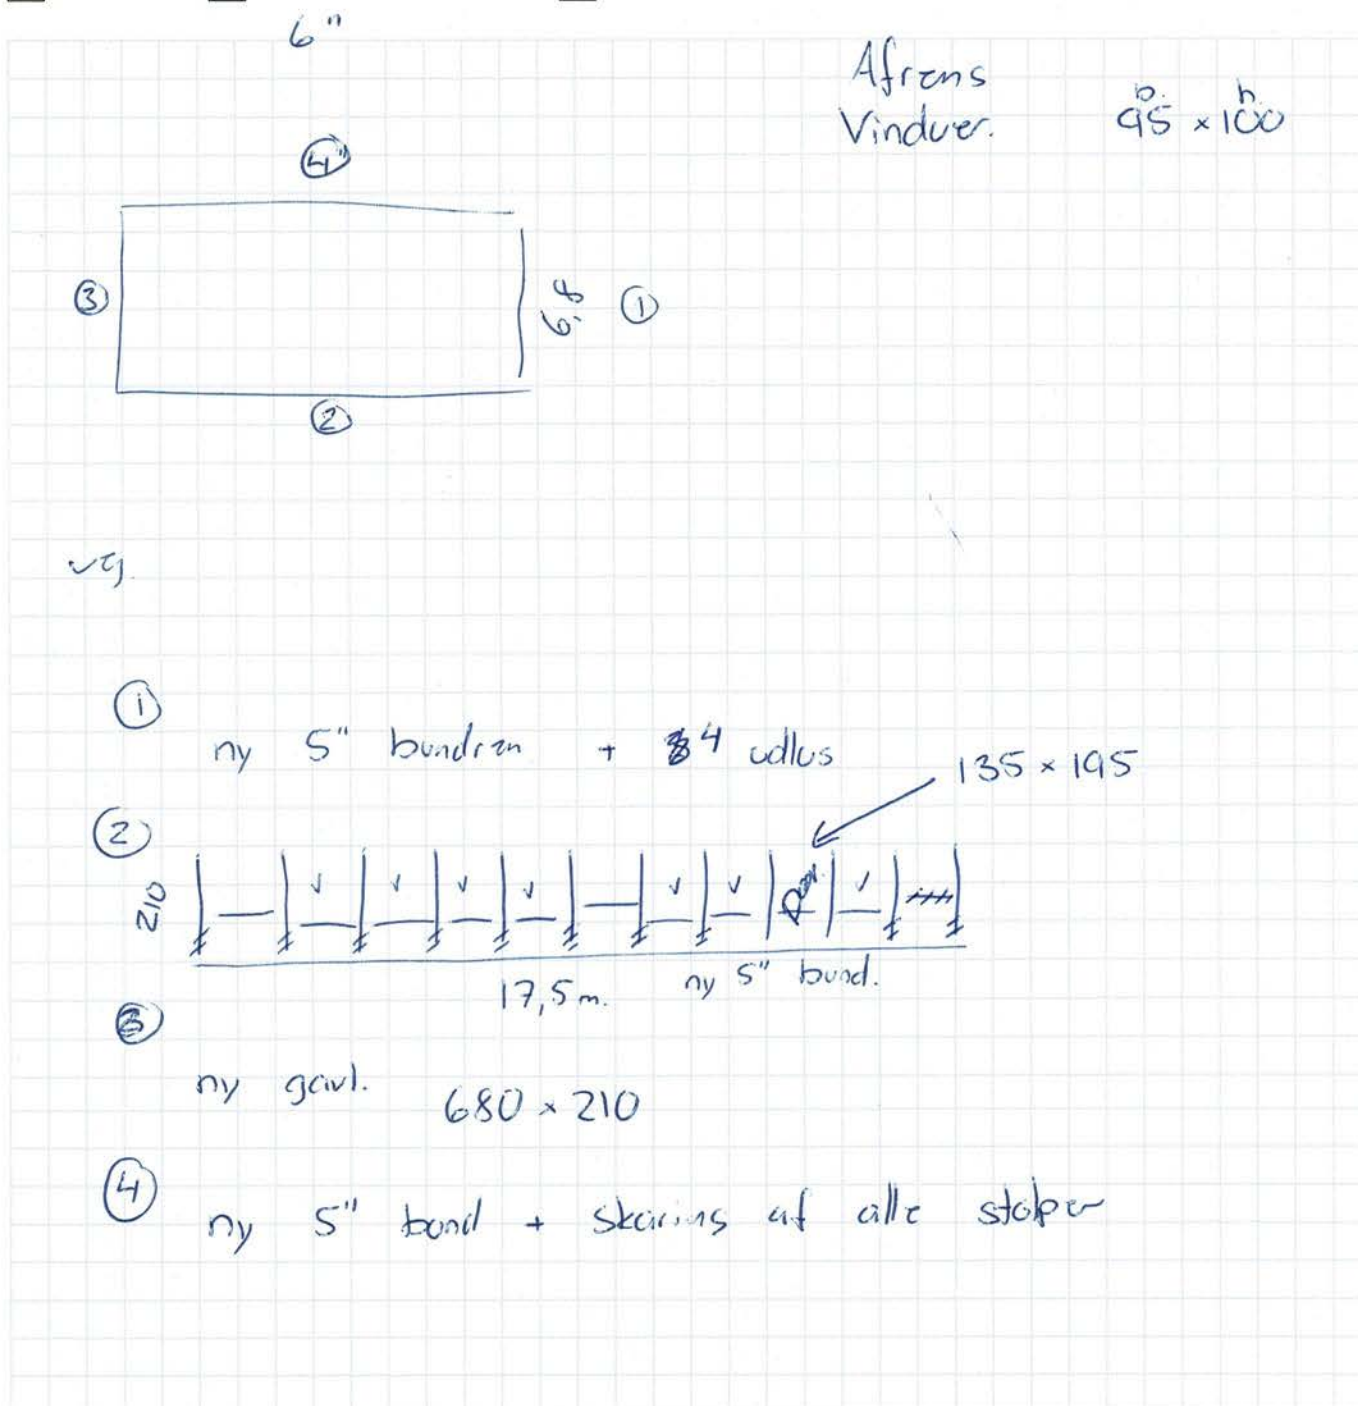 6"
Afrens
Vinduer. b. h. 95 × 100
4"
3
6,8
1
2
1
ny 5" bundrem + 4 udlus
135 × 195
2
210
v v v v v v Dør. v
17,5 m. ny 5" bund.
3
ny gavl. 680 × 210
4
ny 5" bund + skaring af alle stolper